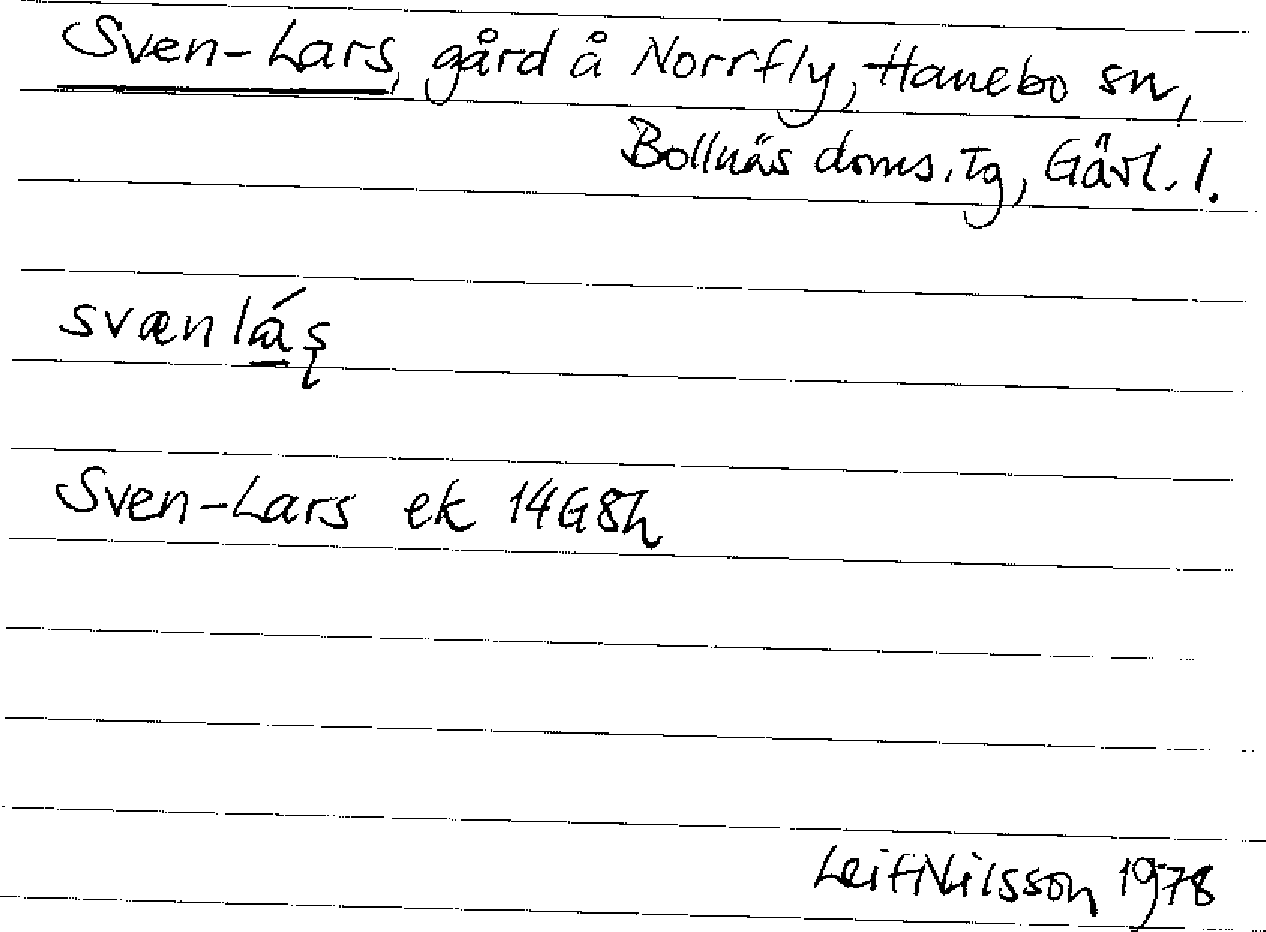 Sven-Lars, gård å Norrfly, Hanebo sn,
Bollnäs doms. Tg, Gävl. l.
svænlá̱ʂ
Sven-Lars ek 14G8h
Leif Nilsson 1978